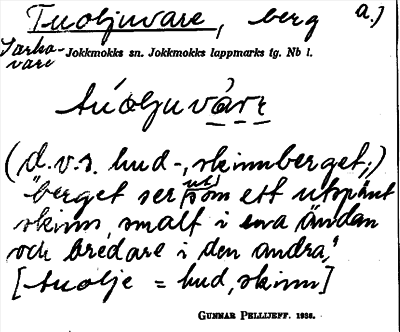 Tuoljuvare, berg a.)
Sarka-
vare
Jokkmokks sn. Jokkmokks lappmarks tg. Nb l.
túoljuvárɛ
(d.v.s. hud-, skinnberget;)
"berget ser ut som ett utspänt
skinn, smalt i ena ändan
och bredare i den andra,"
[tuolje = hud, skinn]
GUNNAR PELLIJEFF. 1936.